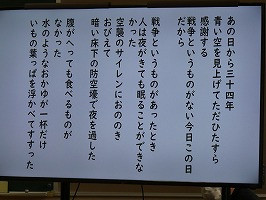 あの日から三十四年
青い空を見上げてただひたすら
感謝する
戦争というものがない今日この日
だから
戦争というものがあったとき
人は夜がきても眠ることができな
かった
空襲のサイレンにおののき
おびえて
暗い床下の防空壕で夜を過した
腹がへっても食べるものが
なかった
水のようなおかゆが一杯だけ
いもの葉っぱを浮かべてすすった